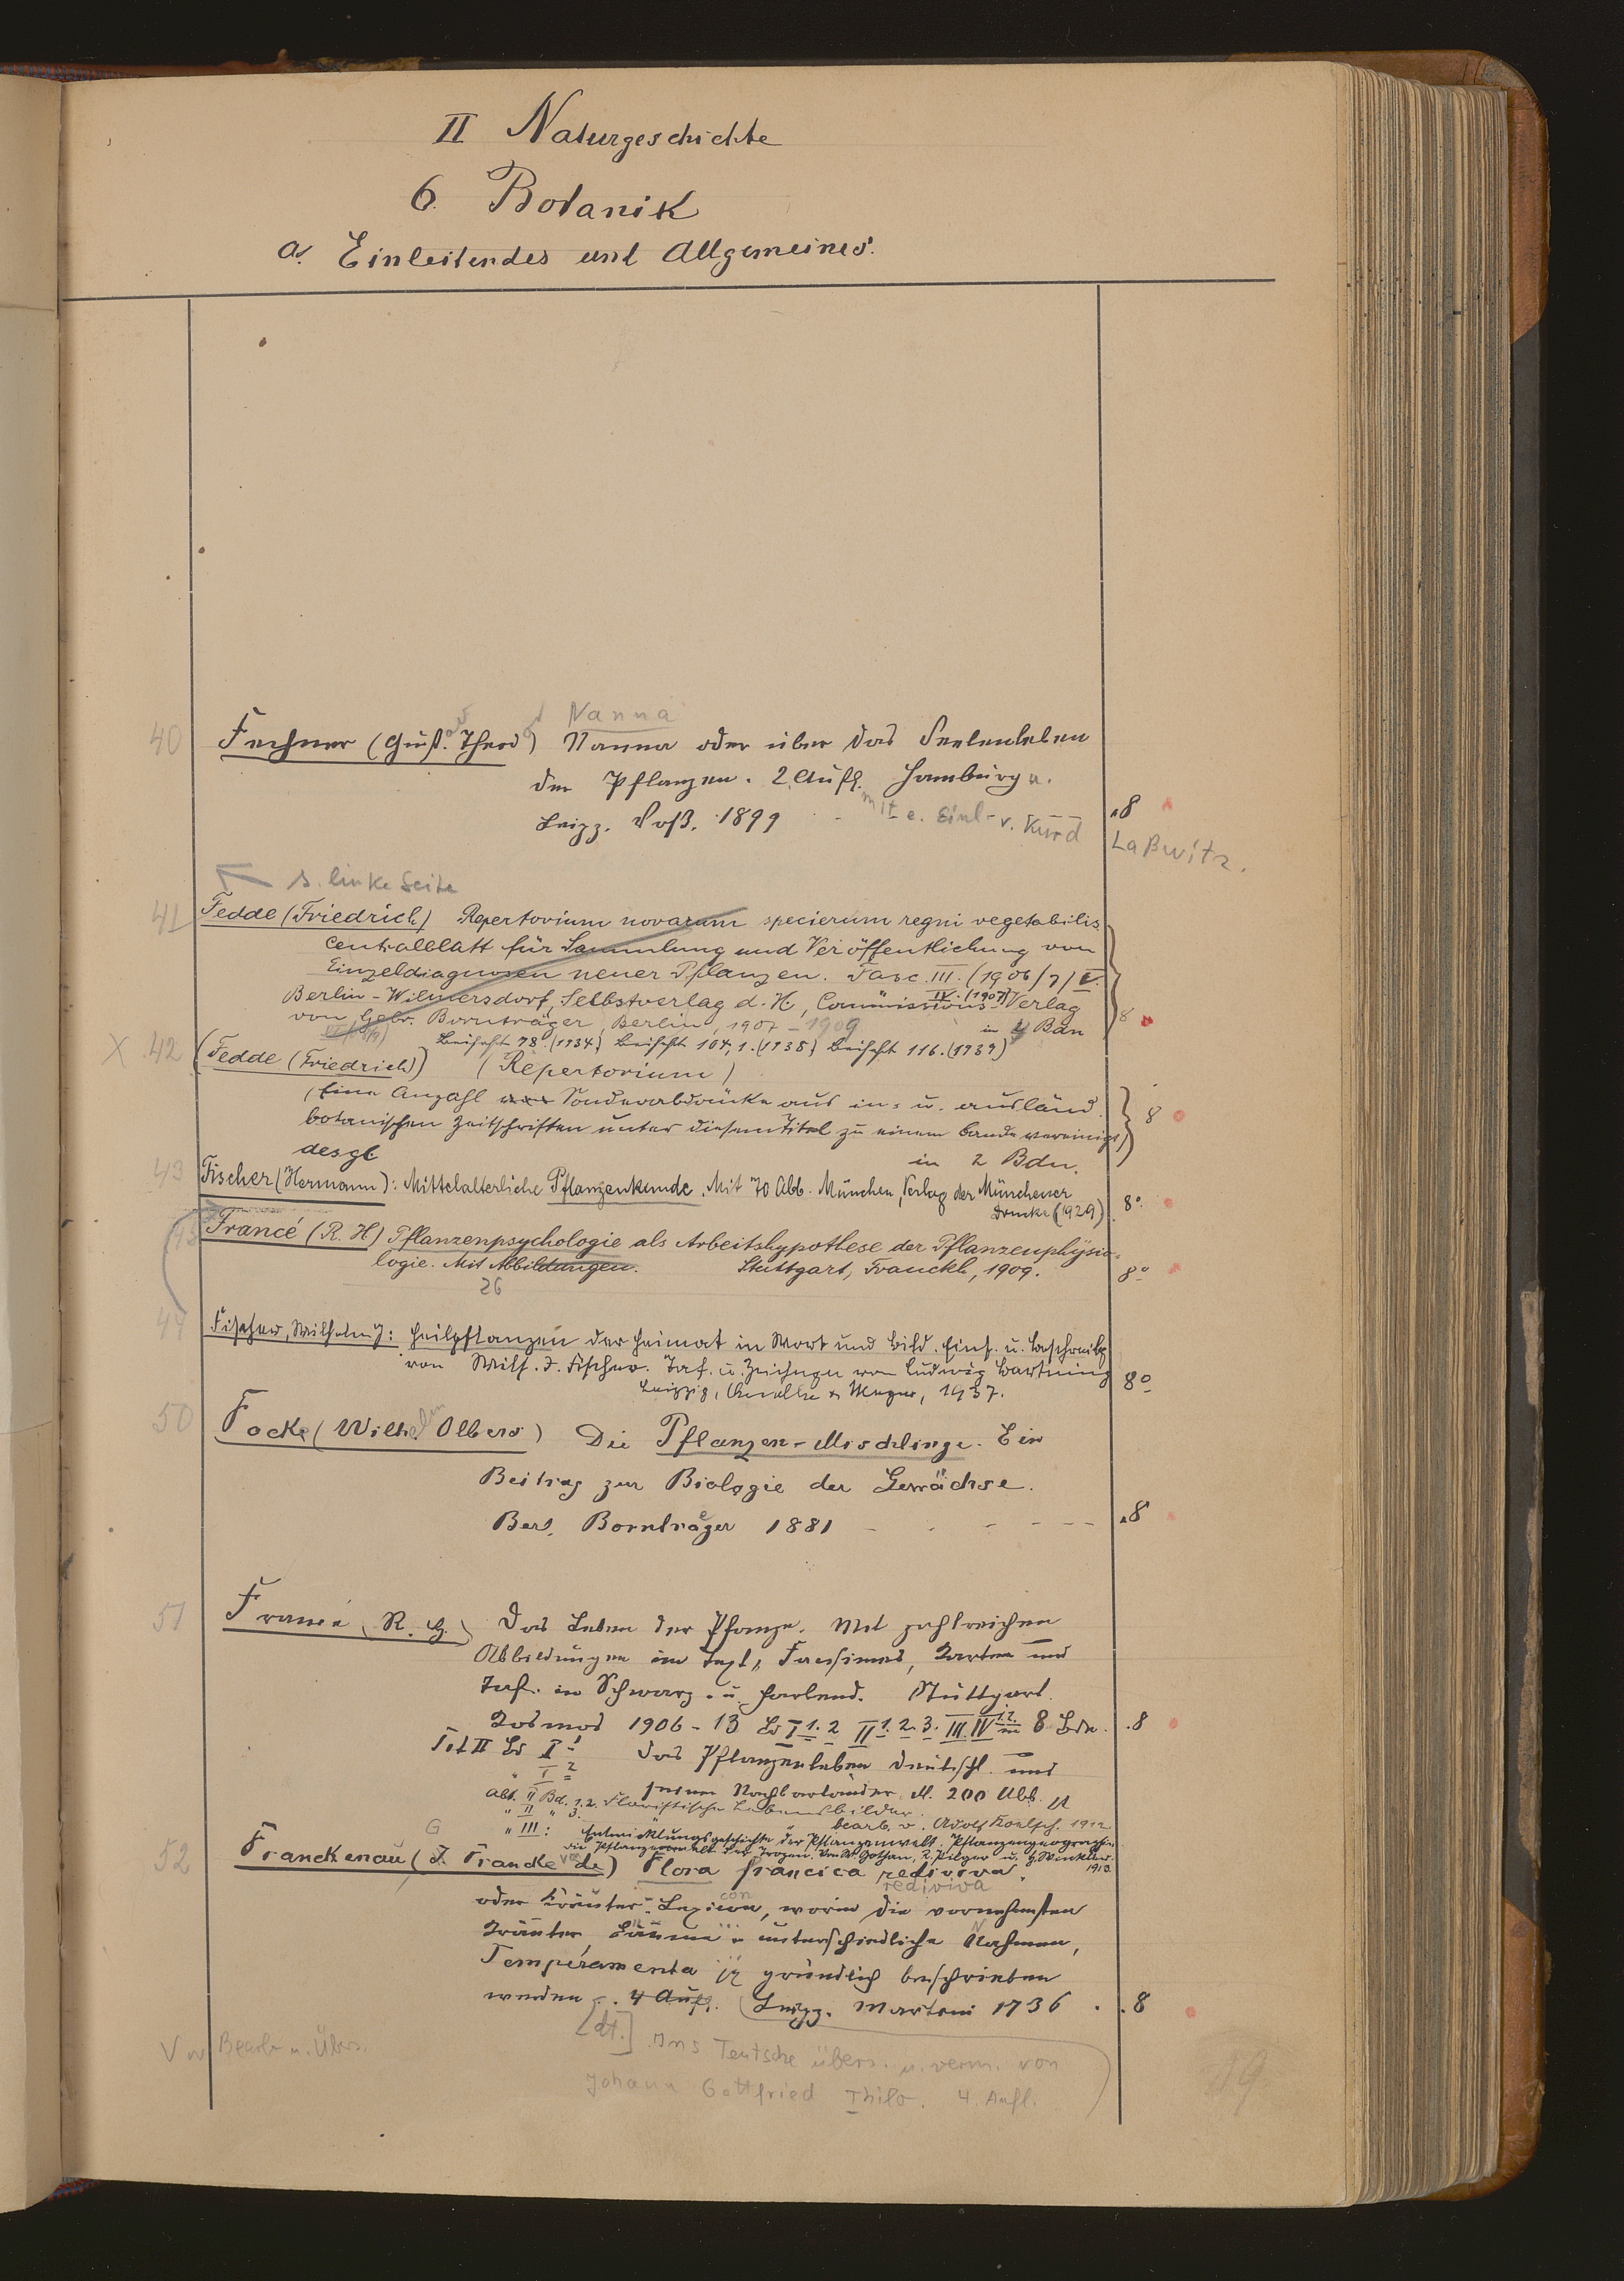 II Naturgeschichte
6. Botanik
a. Einleitendes und Allgemeines.
Nanna
40 Fechner (Gust. Theod) Nanna oder über das Seelenleben
der Pflanzen. 2. Aufl. Hamburg u.
Leipz. Voß. 1899 mit e. Einl. v. Kurd Laßwitz. 8
s. linke Seite
41 Fedde (Friedrich) Repertorium novarum specierum regni vegetabilis
Centralblatt für Sammlung und Veröffentlichung von
Einzeldiagnosen neuer Pflanzen. Fasc. III. (1906/7) V.
IV. (1907)
Berlin-Wilmersdorf, Selbstverlag d. H., Commissions-Verlag
von Gebr. Bornträger, Berlin, 1907-1909 in 4 Bdn 8
Beiheft 78. (1934) Beiheft 104,1. (1938) Beiheft 116. (1939)
X 42 (Fedde (Friedrich)) (Repertorium)
(Eine Anzahl Sonderabdrücke aus in- u. ausländ.
botanischen Zeitschriften unter diesem Titel zu einem Bande vereinigt) 8
desgl in 2 Bdn.
43 Fischer (Hermann): Mittelalterliche Pflanzenkunde. Mit 70 Abb. München, Verlag der Münchener
Drucke (1929) 8°
Francé (R. H) Pflanzenpsychologie als Arbeitshypothese der Pflanzenphysio-
logie. Mit Abbildungen. Stuttgart, Franckh, 1909. 8°
26
44 Fischer, Wilhelm J: Heilpflanzen der Heimat in Wort und Bild. Einf. u. Beschreibg
von Wilh. J. Fischer. Taf. u. Zeichngn von Ludwig Bartning
Leipzig, Quelle & Meyer, 1937. 8°
50 Focke (Wilhelm Olbers) Die Pflanzen-Mischlinge. Ein
Beitrag zur Biologie der Gewächse.
Berl. Bornträger 1881 8
51 Francé (R. H.) Das Leben der Pflanze. Mit zahlreichen
Abbildungen im Text, Facsimes, Karten und
Taf. in Schwarz- u. Farbend. Stuttgart
Kosmos 1906-13 Bd I 1. 2 II 1. 2. 3. III. IV 1.2. in 8 Bdn. 8
Tit II Bd I 1 Das Pflanzenleben Deutschl. und
" I 2 seiner Nachbarländer M. 200 Abb.
Abt. II Bd. 1.2. Floristische Lebensbilder.
" II " 3. " bearb. v. Adolf Koelsch. 1912
" III: Entwicklungsgeschichte der Pflanzenwelt. Pflanzengeographie
Die Pflanzenwelt der Tropen. Von W. Gothan, R. Pilger u. H. Winkler.
1913
G
52 Franckenau (F. Francke de) Flora francica rediviva,
rediviva
oder Kräuter-Lexicon, worin die vornehmsten
Kräuter, Bäume unterschiedliche Nahmen,
Temperamenta gründlich beschrieben
werden. 4 Aufl. Leipz. Martini 1736 8
[dt.] Ins Teutsche übers. u. verm. von
Johann Gottfried Thilo. 4. Aufl.
V w Bearb u. Übers.